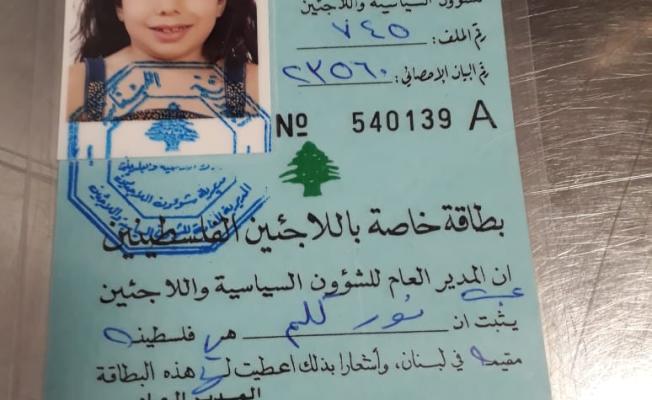 للشؤون السياسية واللاجئين
رقم الملف: ٧٤٥
رقم البيان الإحصائي: ٢٣٥٦٠
Nº 540139 A
بطاقة خاصة باللاجئين الفلسطينيين
ان المدير العام للشؤون السياسية واللاجئين
يثبت ان نور كلم هي فلسطينية
مقيمة في لبنان، وأشعارا بذلك اعطيت لها هذه البطاقة